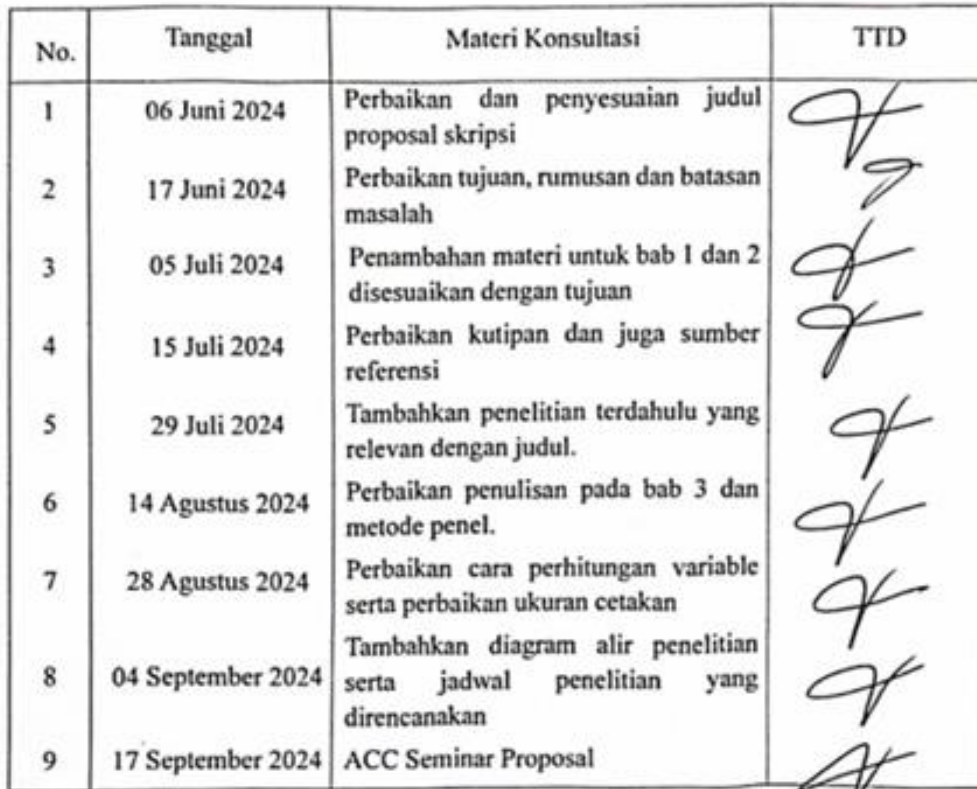 No. Tanggal Materi Konsultasi TTD
1 06 Juni 2024 Perbaikan dan penyesuaian judul
proposal skripsi
2 17 Juni 2024 Perbaikan tujuan, rumusan dan batasan
masalah
3 05 Juli 2024 Penambahan materi untuk bab 1 dan 2
disesuaikan dengan tujuan
4 15 Juli 2024 Perbaikan kutipan dan juga sumber
referensi
5 29 Juli 2024 Tambahkan penelitian terdahulu yang
relevan dengan judul.
6 14 Agustus 2024 Perbaikan penulisan pada bab 3 dan
metode penel.
7 28 Agustus 2024 Perbaikan cara perhitungan variable
serta perbaikan ukuran cetakan
Tambahkan diagram alir penelitian
8 04 September 2024 serta jadwal penelitian yang
direncanakan
9 17 September 2024 ACC Seminar Proposal